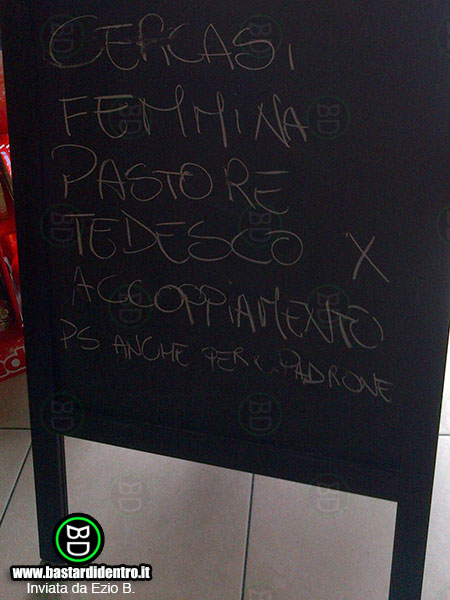 CERCASI
FEMMINA
PASTORE
TEDESCO X
ACCOPPIAMENTO
PS ANCHE PER IL PADRONE
www.bastardidentro.it
Inviata da Ezio B.